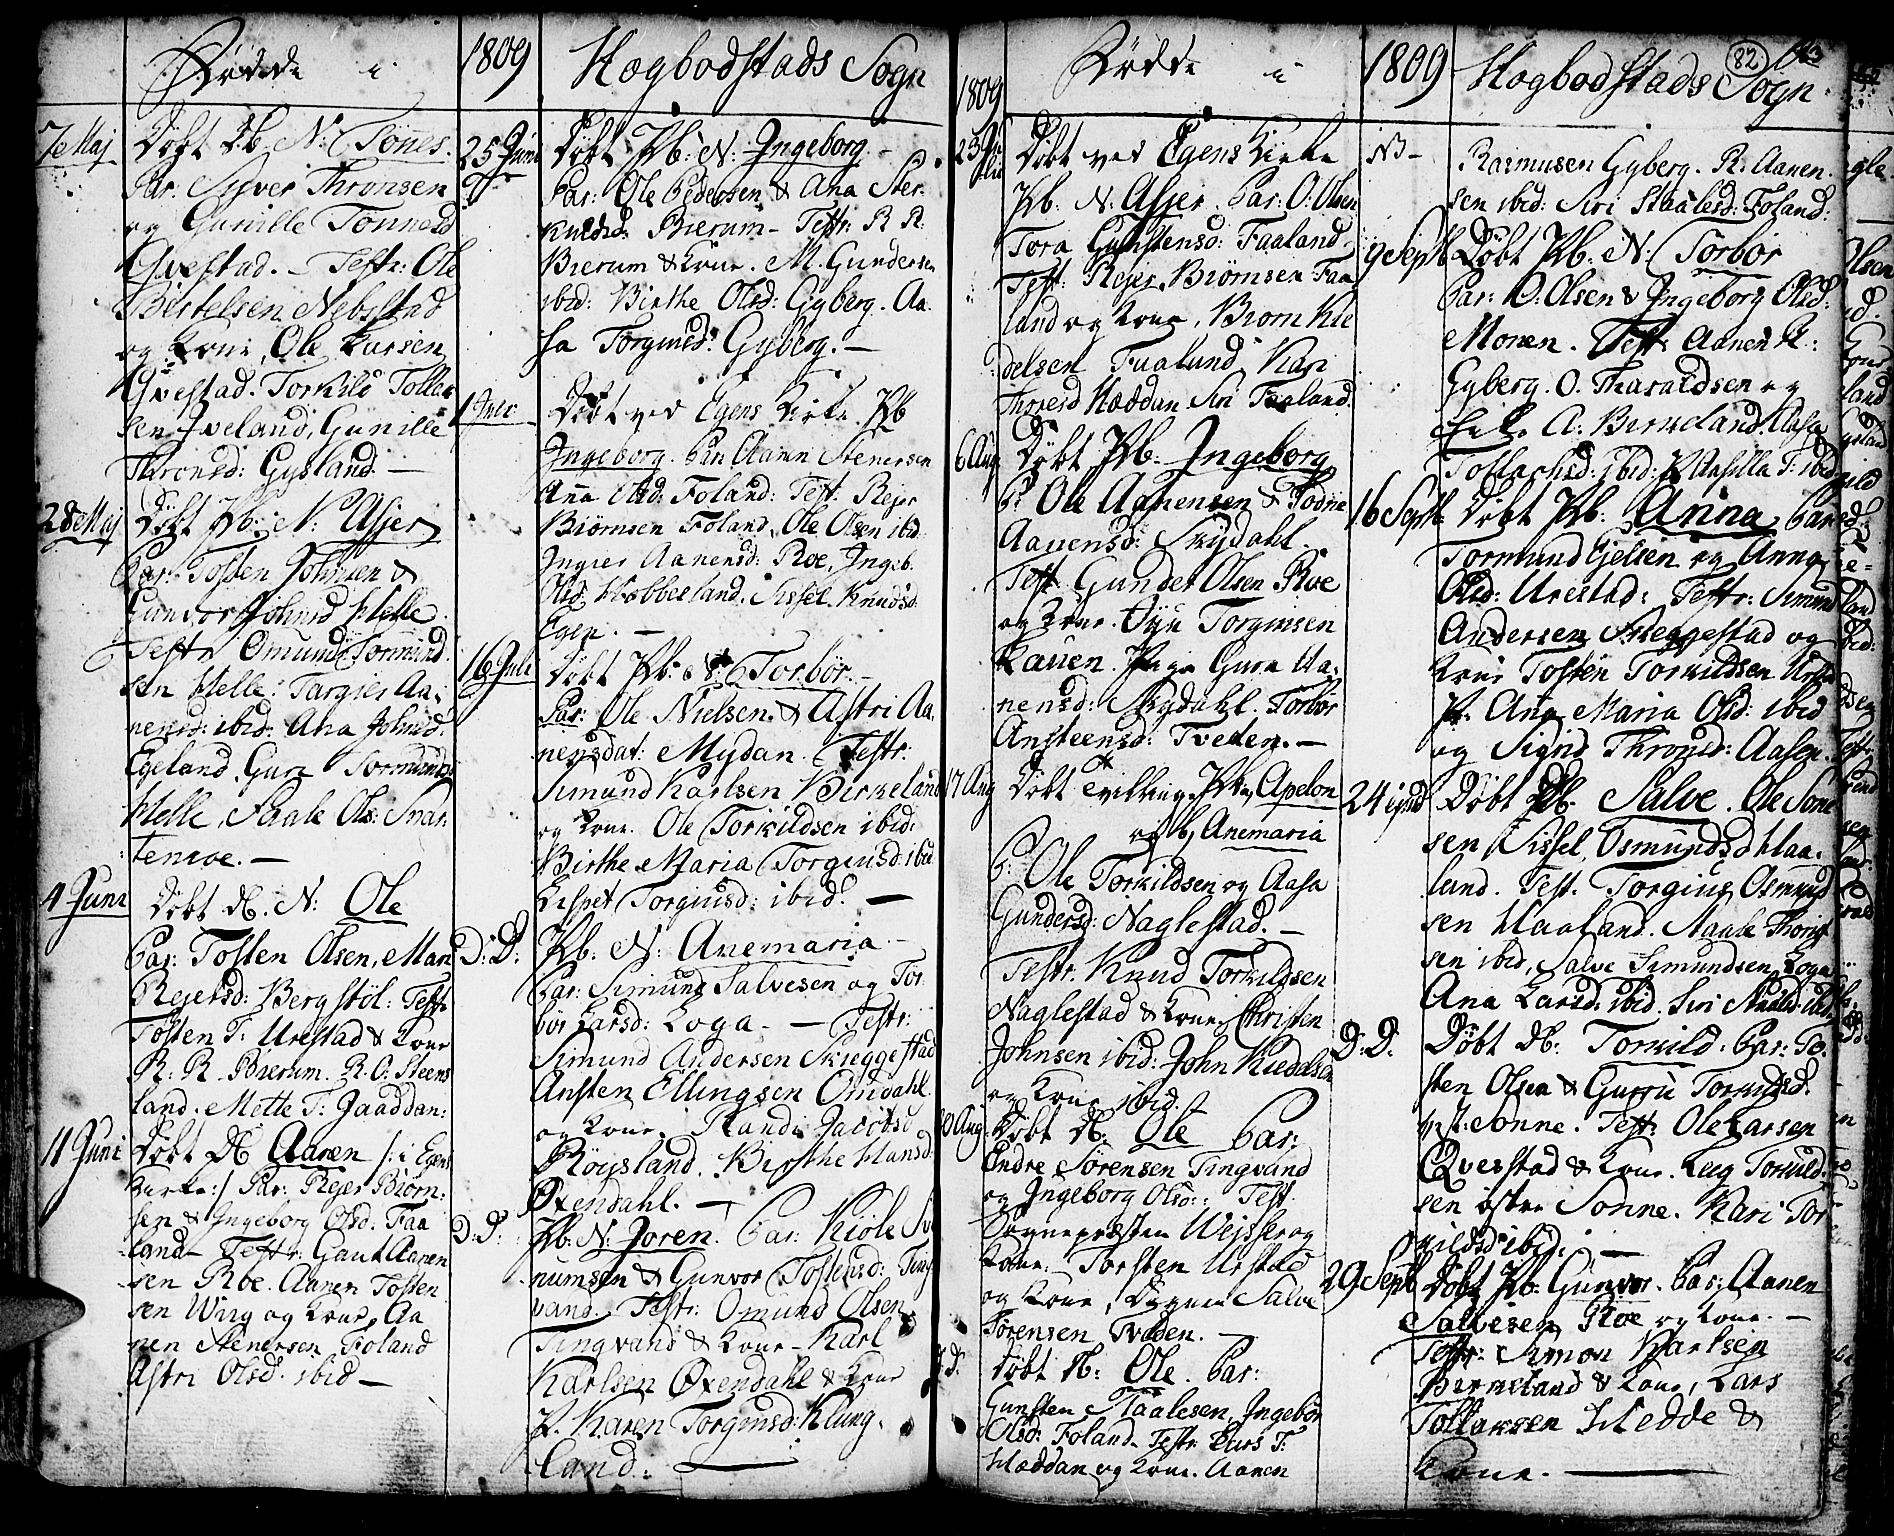 Fødde i 1809 Hægbodstads Sogn
7e Maj Døbt Db. N: Tönes.
Par. Sijver Thronsen
og Gunille Tönnesd
Qvestad. Testr: Ole
Bertelsen Nebstad
og Kone, Ole Larsen
Qvestad. Torkild Tollev
sen Iveland, Gunille
Thronsd: Gysland. —
28 Maj Døbt Pb: N: Asjer
Par: Tosten Johnsen &
Gunvor Johnsd Helle
Testr Omund Tormund
sen Helle: Targier Aa-
nensd: ibid. Ana Johnsd:
Egeland. Guro Tormunds
Helle, Staale Ols: Snar-
temoe. —
4 Juni Døbt Db. N: Ole
Par: Tosten Olsen, Mari
Reiersd: Bergstøl: Testr
Tosten T: Urestad & Kone
R: R. Bierum. R. O: Steens
land. Mette T: Jaaddan:
11 Juni Døbt Db Aanen /: i Egens
Kirke :/ Par: Rejer Biørn-
sen & Ingeborg Olsd: Faa
land — Testr: Gaut Aanen
sen Roe. Aanen Tosten
sen Wirg og Kone, Aa
nen Stenersen Foland
Astri Olsd. ibid —
25 Juni Døbt Pb: N: Ingeborg. —
Par: Ole Pedersen & Ana Ster-
kuldsd: Bierum — Testr: R R:
Bierum & Kone. M. Gundersen
ibid: Birthe Olsd: Gyberg. Aa-
sa Torgiusd: Gyberg. —
1 Julii Døbt ved Egens Kirke Pb
Ingeborg. Par Aanen Stenersen
Ana Olsd: Foland: Test: Rejer
Biørnsen Foland, Ole Olsen ibid:
Ingier Aanensd: Roe, Ingeb.
Olsd. Hobbesland. Sissel Knudsd:
Egen. —
16 Juli Døbt Pb: N: Torbor. —
Par: Ole Nielsen & Astri Aa.
nensdat: Mydan. Testr:
Simund Karlsen Birkeland
og Kone. Ole Torkildsen ibid:
Birthe Maria Torgiusd: ibid
Lispet Torgiusd: ibid. —
D: D. Pb: N: Anemaria —
Par: Simund Salvesen og Tor-
bør Larsd: Loga. — Testr:
Simund Andersen Skieggestad
Ansten Ellingsen Omdahl
og Kone. Randi Jacobsd
Röijsland. Birthe Hansd:
Øxendahl. —
D: D: Pb: N: Joren. Par: Kiöle Sv
numsen & Gunvor Tostensd: Ting
vand. Testr: Omund Olsen
Tingvand & Kone — Karl
Karlsen Øxendahl & Kone
P. Karen Torgiusd: Klung-
land. —
1809 Fødde i 1809 Hægbodstads Sogn 82
23 Julii Døbt ved Egens Kirke
Pb: N: Asjer. Par: O: Olsen
Tora Gunstensd: Faaland
Test: Rejer Biörnsen Faa
land og Kone, Biørn Kie
delsen Faaland Kari
Thoresd Hæddan Siri Faaland.
6 Aug Døbt Pb: Ingeborg
P: Ole Aanensen & Todne
Aanensd: Skydahl.
Test: Gunder Olsen Roe
og Kone. Oyu Torgiusen
Lauen. Pige Guru Aa-
nensd: Skydahl. Torbor
Ansteensd: Tveten. —
17 Aug Døbt tvilling Pb, Apelon
og Anemaria
P: Ole Torkildsen og Aasa
Gundersd: Naglestad. —
Testr. Knud Torkildsen
Naglestad & Kone, Christen
Johnsen ibid: John Kiedelsen
og Kone ibid.
Aug Døbt Db: Ole Par:
Endre Sörensen Tingvand
og Ingeborg Olsd: Test:
Sognepræsten Weisse og
Kone. Torsten Urstad
og Kone, Degnen Salve
Sörensen Tveden. —
D. Døbt Db: Ole. Par:
Gunsten Staalesen, Ingebor
Olsd: Foland. Testr Lars T:
Hæddan og Kone. Aanen
NB — Rasmusen Gyberg. R. Aanen-
sen ibid: Siri Staalesd: Foland:
9 Sept Døbt Pb: N: Torbor
Par: O: Olsen & Ingeborg Olsd:
Monen. Testr Aanen R:
Gyberg. O. Tharaldsen og
A: Birkeland, Aasa
Tollachsd: ibid: P. Aasilla T: ibid
16 Sept Døbt Pb: Anna, Par
Tormund Gjelsen og Anna
Olsd: Urestad: Testr: Simund
Andersen Skieggestad og
Kone Tosten Torkildsen Urstad
P. Ana Maria Olsd: ibid
og Sigrid Thronsd: Aasen.
24 ejusd Døbt Db. Salve. Ole Sone
sen Sissel Osmundsd Haa-
land. Test. Torgius Osmund
sen Haaland. Aanle Thorst
sen ibid, Salve Simundsen Loga
Ana Larsd: ibid. Siri
D: D. Døbt Db: Torkild. Par: To-
sten Olsen & Gurru Torkildsd:
øst: Sonne. Testr Ole Larsen
Qverstad & Kone. Leeg Torkild-
sen østre Sonne. Kari Tor-
kildsd ibid. —
29 Sept Døbt Pb: Gunvor. Par: Aanen
Salvesen Roe og Kone. —
Testr: Simon Karlsen
Birkeland & Kone, Lars
Tollaksen Hedde &
Kone. —